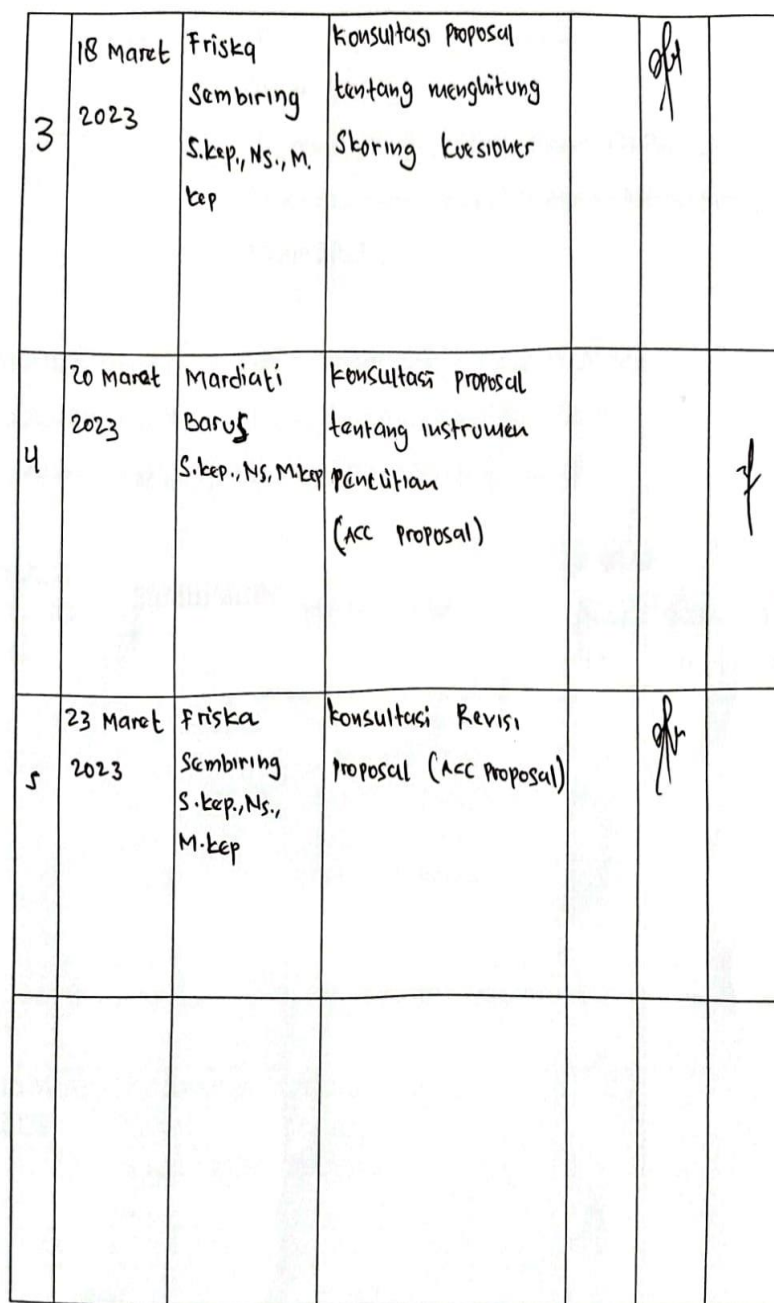 3
18 Maret
2023
Friska
Sembiring
S.kep., Ns., M.
kep
Konsultasi Proposal
tentang menghitung
Skoring kuesioner
4
20 Maret
2023
Mardiati
Barus
S.kep., Ns, M.kep
Konsultasi proposal
tentang instrumen
penelitian
(ACC Proposal)
5
23 Maret
2023
Friska
Sembiring
S.kep., Ns.,
M.kep
konsultasi Revisi
Proposal (ACC Proposal)